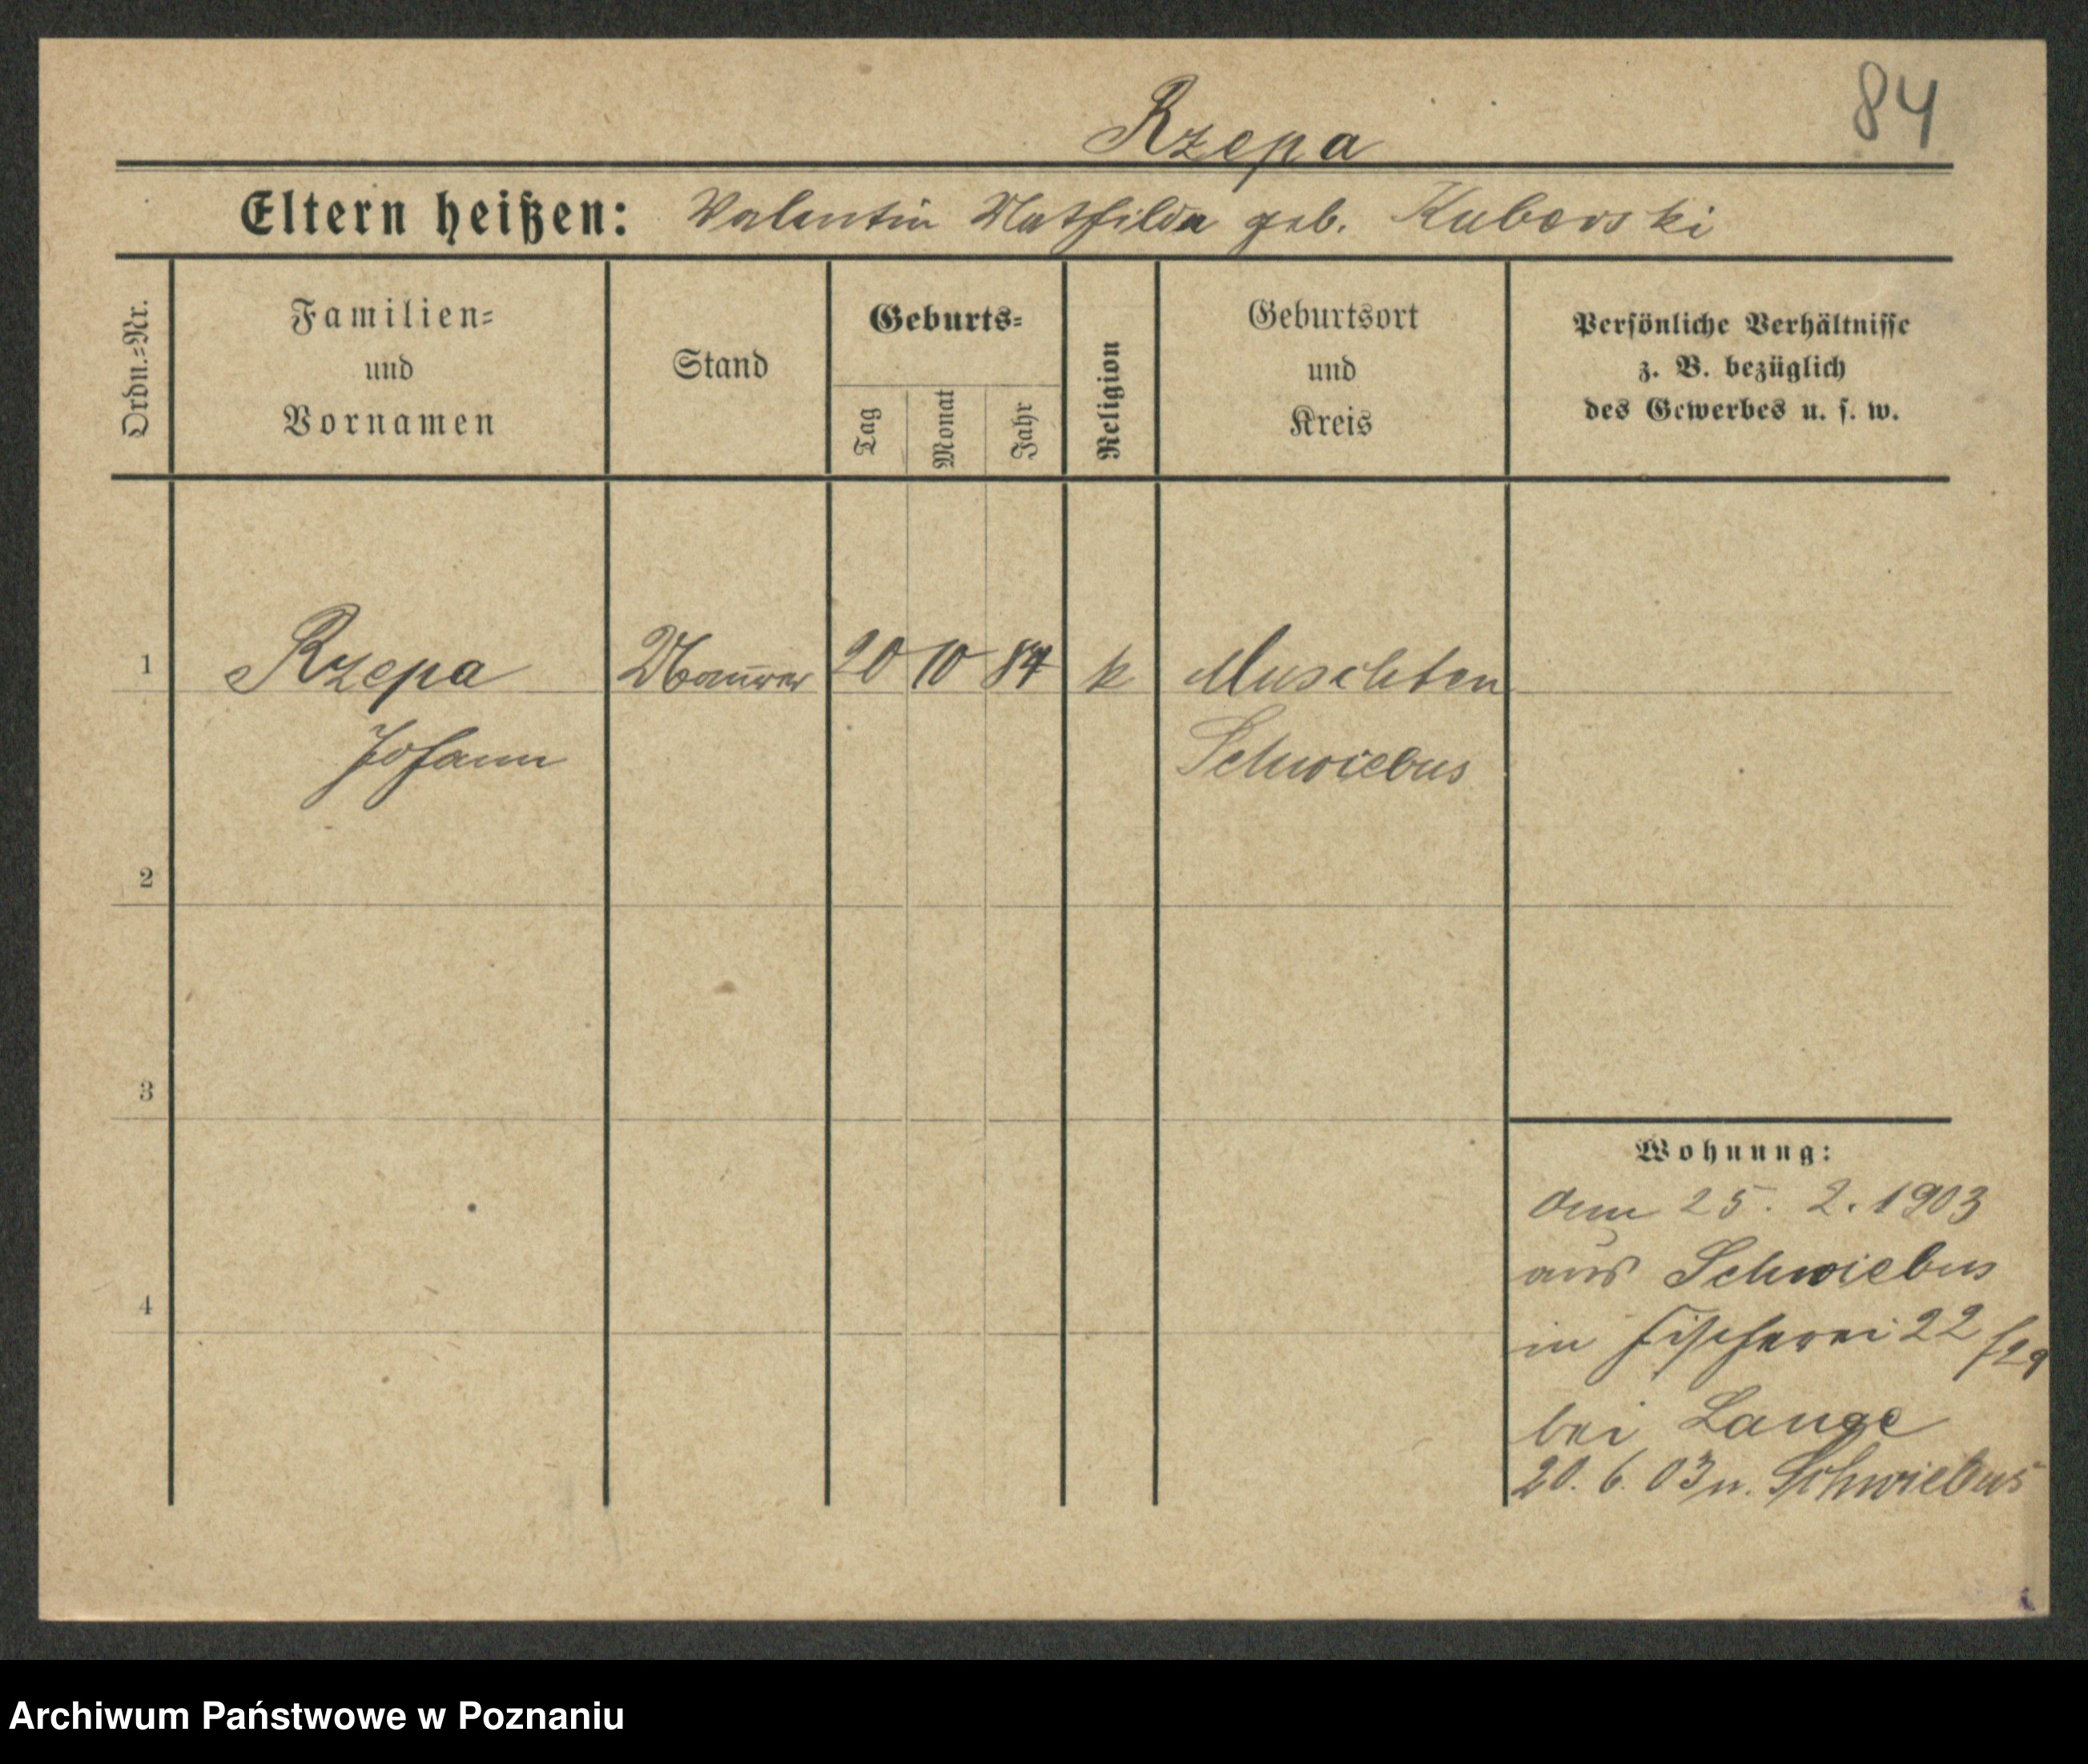 84
Rzepa
Eltern heißen: Valentin Mathilda geb. Kuberski
Ordn.=Nr.
Familien=
und
Vornamen
Stand
Geburts=
Tag
Monat
Jahr
Religion
Geburtsort
und
Kreis
Persönliche Verhältnisse
z. B. bezüglich
des Gewerbes u. s. w.
1 Rzepa Maurer 20 10 84 k Muschten
Johann Schwiebus
2
3
4
Wohnung:
25. 2. 1903
aus Schwiebus
in Fischerei 22
bei Lange
20. 6. 03 n. Schwiebus
Archiwum Państwowe w Poznaniu